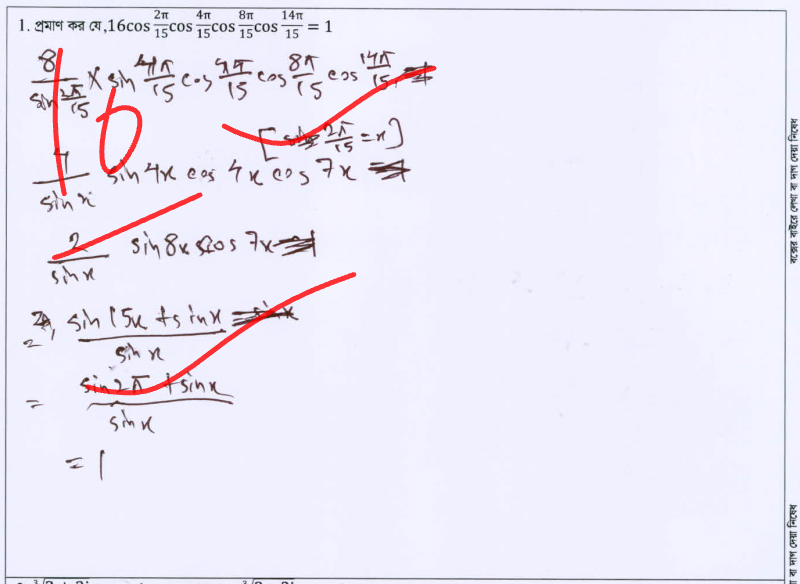 1. প্রমাণ কর যে, 16cos 2π/15 cos 4π/15 cos 8π/15 cos 14π/15 = 1
8/sin 2π/15 × sin 4π/15 cos 4π/15 cos 8π/15 cos 14π/15
[2π/15 = x]
4/sin x sin 4x cos 4x cos 7x
2/sin x sin 8x cos 7x
sin 15x + sin x / sin x
= sin 2π + sin x / sin x
= 1
বক্সের বাইরে লেখা বা দাগ দেয়া নিষেধ
বা দাগ দেয়া নিষেধ